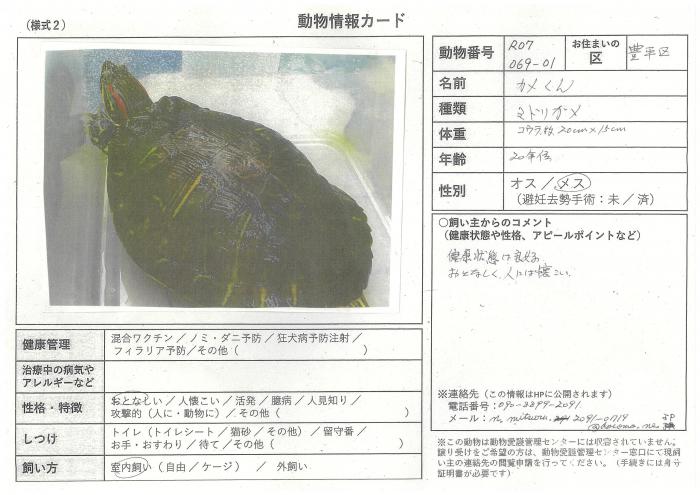 （様式２）
動物情報カード
動物番号 R07 069-01 お住まいの区 豊平区
名前 カメくん
種類 ミドリガメ
体重 コウラ 20cm×15cm
年齢 20年位
性別 オス ／ メス
（避妊去勢手術：未 ／ 済）
〇飼い主からのコメント
（健康状態や性格、アピールポイントなど）
健康状態は良好。
おとなしく、人には懐こい。
※連絡先（この情報はHPに公開されます）
電話番号：090-2899-2091
メール：
※この動物は動物愛護管理センターには収容されていません。
譲り受けをご希望の方は、動物愛護管理センター窓口にて現飼
い主の連絡先の閲覧申請を行ってください。（手続きには身分
証明書が必要です）
健康管理 混合ワクチン ／ ノミ・ダニ予防 ／ 狂犬病予防注射 ／
フィラリア予防／その他（ ）
治療中の病気や
アレルギーなど
性格・特徴 おとなしい ／ 人懐こい ／ 活発 ／ 臆病 ／ 人見知り ／
攻撃的（人に・動物に）／ その他（ ）
しつけ トイレ（トイレシート ／ 猫砂 ／ その他）／ 留守番 ／
お手・おすわり ／ 待て ／ その他（ ）
飼い方 室内飼い（自由 ／ ケージ） ／ 外飼い